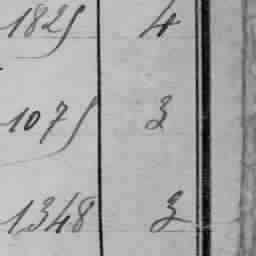 1825 4
1075 3
1348 3